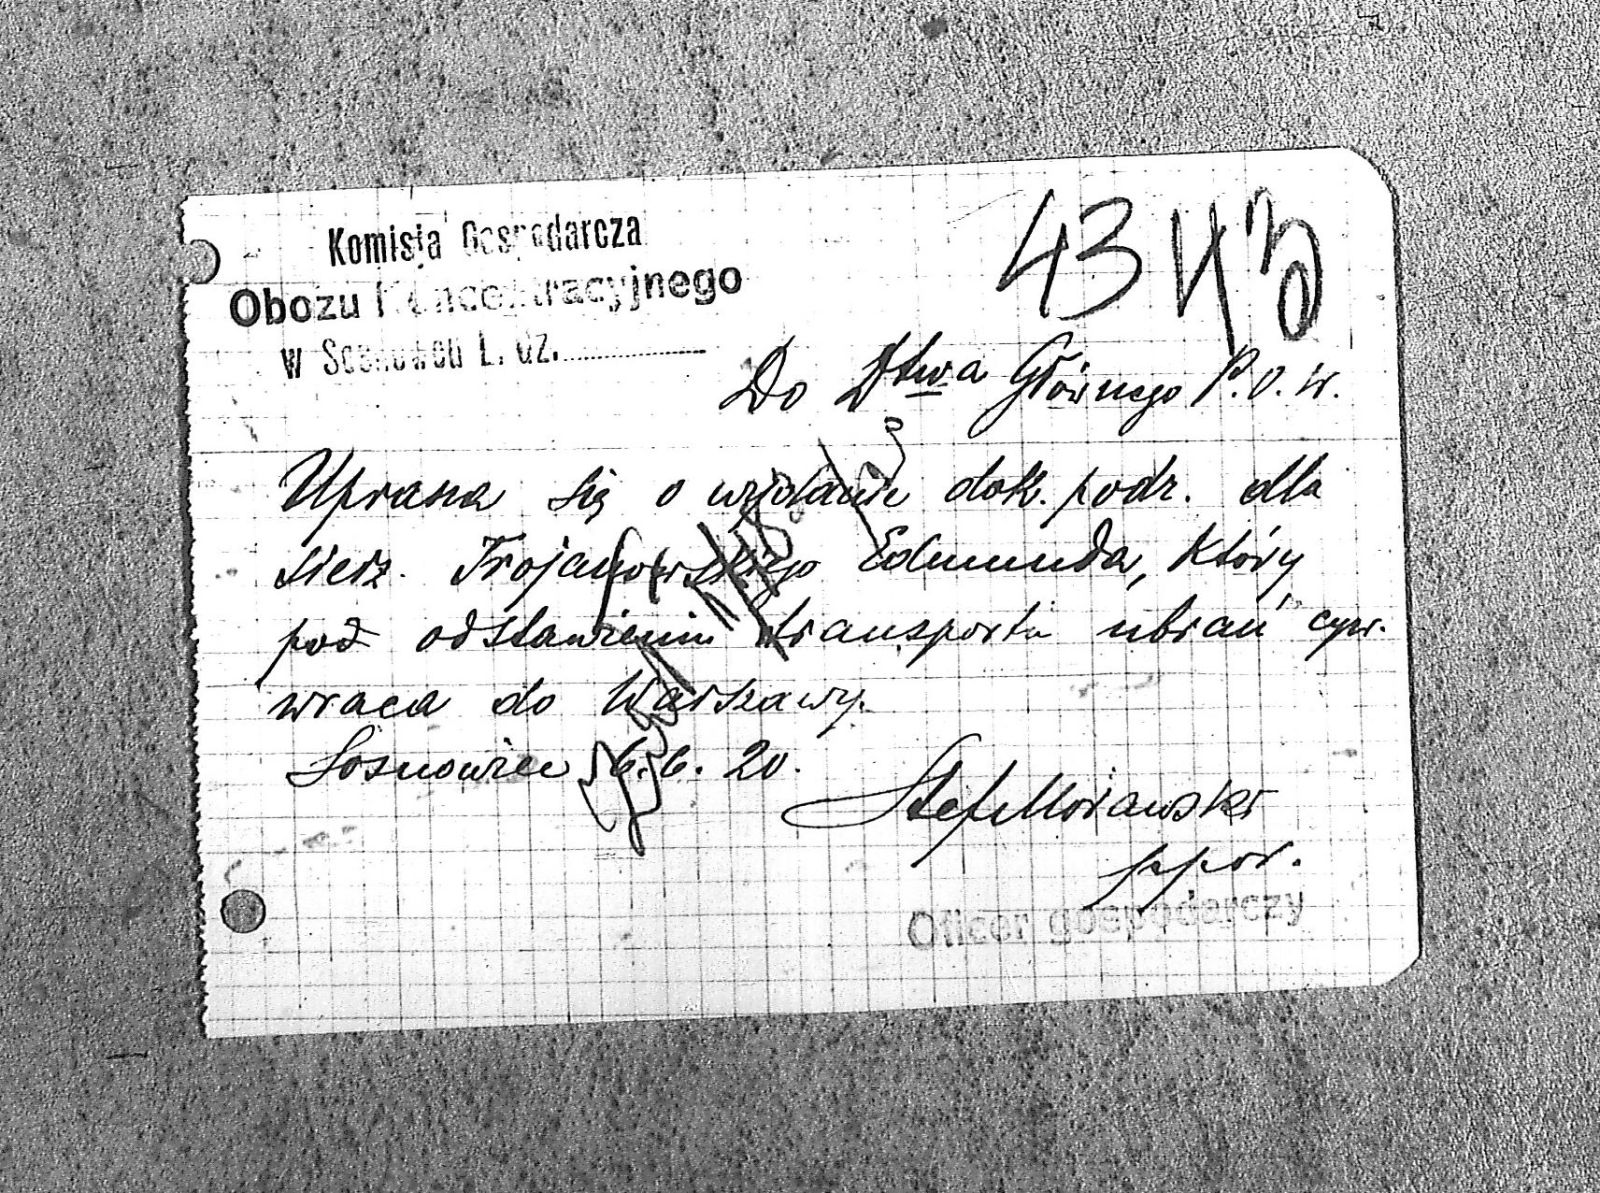 Komisja Gospodarcza
Obozu Koncentracyjnego
w Sosnowcu L. dz.
43 43
Do Dtwa Głównego P.O.W.
Uprasza się o wydanie dok. podr. dla
sierż. Trojanowskiego Edmunda, który
pod odstawieniu transportu ubrań cyw.
wraca do Warszawy.
Sosnowiec 6.6.20.
Stef Morawski
ppor.
Oficer gospodarczy